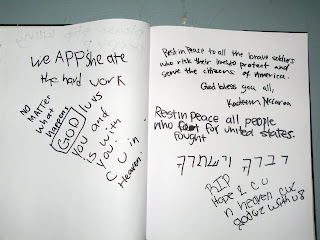 we APPshe ate
the hard work
NO MATTER
what
happens
GOD luvs
you and
is with
you
C U in
Heaven!
Rest in Peace to all the brave soldiers
who risk their lives to protect and
serve the citizens of America.
God bless you all,
Rest in peace all people
who for united states.
fought
RIP
Hope 2 C U
n heaven cuz
godz with us